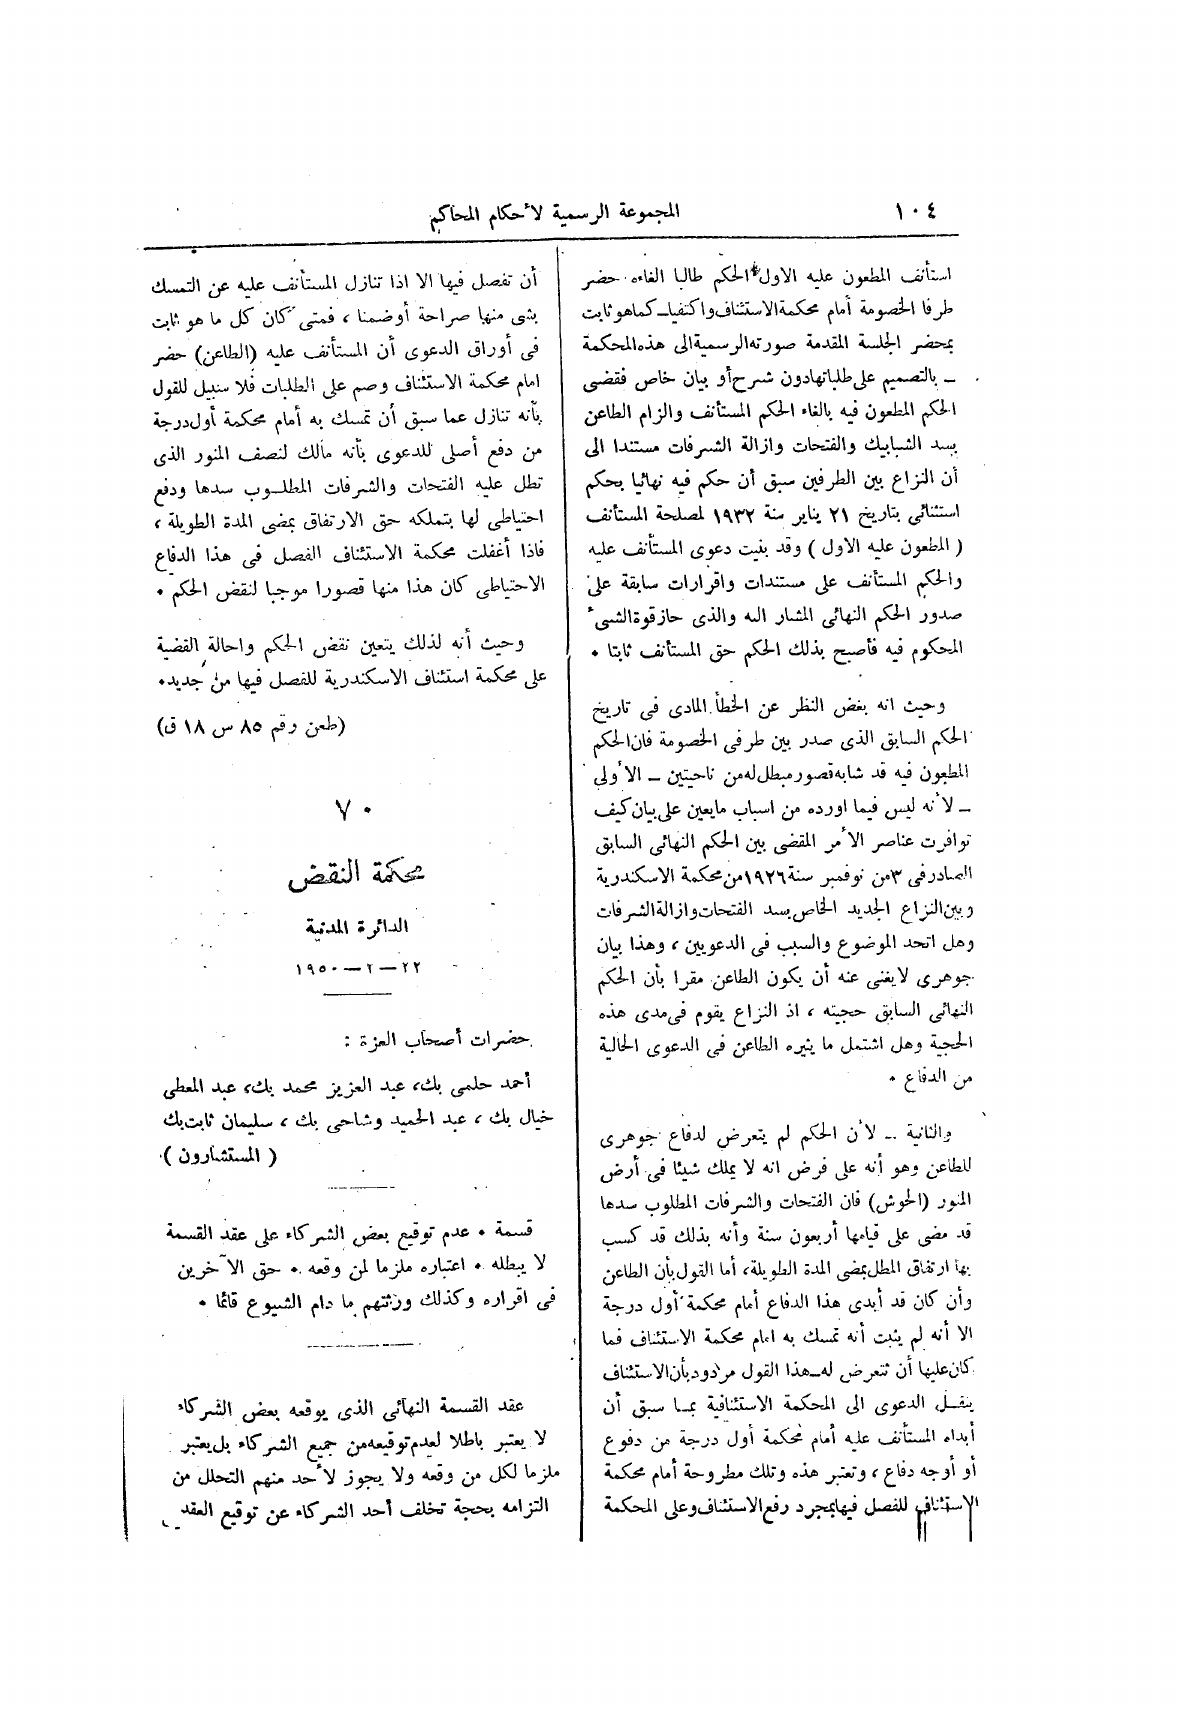 ١٠٤
المجموعة الرسمية لأحكام المحاكم
استأنف المطعون عليه الاول الحكم طالبا الغاءه حضر
طرفا الخصومة أمام محكمة الاستئناف واكتفيا ـ كما هو ثابت
بمحضر الجلسة المقدمة صورته الرسمية الى هذه المحكمة
ـ بالتصميم على طلباتهادون شرح أو بيان خاص فقضى
الحكم المطعون فيه بالغاء الحكم المستأنف والزام الطاعن
بسد الشبابيك والفتحات وازالة الشرفات مستندا الى
أن النزاع بين الطرفين سبق أن حكم فيه نهائيا بحكم
استئنائى بتاريخ ٢١ يناير سنة ١٩٣٢ لمصلحة المستأنف
( المطعون عليه الاول ) وقد بنيت دعوى المستأنف عليه
والحكم المستأنف على مستندات واقرارات سابقة على
صدور الحكم النهائى المشار اليه والذى حاز قوة الشىء
المحكوم فيه فأصبح بذلك الحكم حق المستأنف ثابتا •
وحيث انه بغض النظر عن الخطأ المادى فى تاريخ
الحكم السابق الذى صدر بين طرفى الخصومة فان الحكم
المطعون فيه قد شابه قصور مبطل له من ناحيتين ـ الأولى
ـ لأنه ليس فيما اورده من اسباب مايعين على بيان كيف
توافرت عناصر الأمر المقضى بين الحكم النهائى السابق
الصادر فى ٣ من نوفمبر سنة ١٩٢٦ من محكمة الاسكندرية
وبين النزاع الجديد الخاص بسد الفتحات وازالة الشرفات
وهل اتحد الموضوع والسبب فى الدعويين ، وهذا بيان
جوهرى لايغنى عنه أن يكون الطاعن مقرا بأن الحكم
النهائى السابق حجيته ، اذ النزاع يقوم فى مدى هذه
الحجية وهل اشتمل ما يثيره الطاعن فى الدعوى الحالية
من الدفاع •
والثانية ـ لأن الحكم لم يتعرض لدفاع جوهرى
للطاعن وهو أنه على فرض انه لا يملك شيئا فى أرض
المنور (الحوش) فان الفتحات والشرفات المطلوب سدها
قد مضى على قيامها أربعون سنة وأنه بذلك قد كسب
بها ارتفاق المطل بمضى المدة الطويلة، أما القول بأن الطاعن
وأن كان قد أبدى هذا الدفاع أمام محكمة أول درجة
الا أنه لم يثبت أنه تمسك به امام محكمة الاستئناف فما
كان عليها أن تتعرض له ـ هذا القول مردود بأن الاستئناف
ينقـل الدعوى الى المحكمة الاستئنافية بمـا سبق أن
أبداه المستأنف عليه أمام محكمة أول درجة من دفوع
أو أوجه دفاع ، وتعتبر هذه وتلك مطروحة أمام محكمة
الاستئناف للفصل فيها بمجرد رفع الاستئناف وعلى المحكمة
أن تفصل فيها الا اذا تنازل المستأنف عليه عن التمسك
بشى منها صراحة أوضمنا ، فمتى كان كل ما هو ثابت
فى أوراق الدعوى أن المستأنف عليه (الطاعن) حضر
امام محكمة الاستئناف وصم على الطلبات فلا سبيل للقول
بأنه تنازل عما سبق أن تمسك به أمام محكمة أول درجة
من دفع أصلى للدعوى بأنه مالك لنصف المنور الذى
تطل عليه الفتحات والشرفات المطلـوب سدها ودفع
احتياطى لها بتملكه حق الارتفاق بمضى المدة الطويلة ،
فاذا أغفلت محكمة الاستئناف الفصل فى هذا الدفاع
الاحتياطى كان هذا منها قصورا موجبا لنقض الحكم •
وحيث أنه لذلك يتعين نقض الحكم واحالة القضية
على محكمة استئناف الاسكندرية للفصل فيها من جديد•
(طعن رقم ٨٥ س ١٨ ق)
٧٠
محكمة النقض
الدائرة المدنية
٢٢ — ٢ — ١٩٥٠
حضرات أصحاب العزة :
أحمد حلمى بك، عبد العزيز محمد بك، عبد المعطى
خيال بك ، عبد الحميد وشاحى بك ، سليمان ثابت بك
( المستشارون )
قسمة • عدم توقيع بعض الشركاء على عقد القسمة
لا يبطله • اعتباره ملزما لمن وقعه • حق الآخرين
فى اقراره وكذلك ورثتهم ما دام الشيوع قائما •
عقد القسمة النهائى الذى يوقعه بعض الشركاء
لا يعتبر باطلا لعدم توقيعه من جميع الشركاء بل يعتبر
ملزما لكل من وقعه ولا يجوز لأحد منهم التحلل من
التزامه بحجة تخلف أحد الشركاء عن توقيع العقد